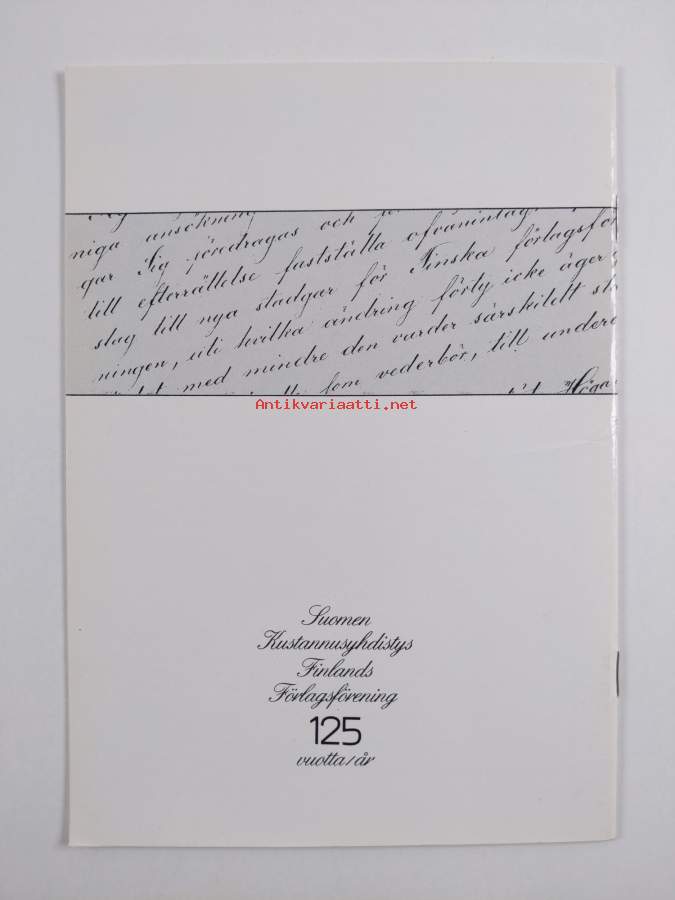 niga ansökning
gar Sig föredragas och
till efterrättelse fastställa ofvanintag
slag till nya stadgar för Finska förlagsför
ningen, uti hvilka ändring förty icke äger
med mindre den varder särskildt
som vederbör, till undere
Höga
Antikvariaatti.net
Suomen
Kustannusyhdistys
Finlands
Förlagsförening
125
vuotta/år